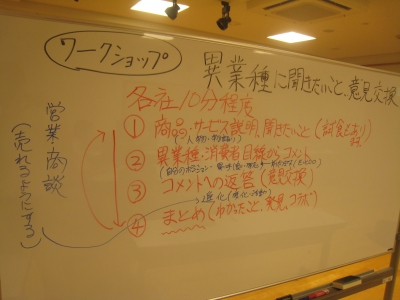 ワークショップ
異業種に聞きたいこと、意見交換
各社10分程度
① 商品・サービス説明、聞きたいこと(試食もあり)
② 異業種・消費者目線からコメント
③ コメントへの返答(意見交換)
④ まとめ(わかったこと、発見、コラボ)
営業・商談
(売れるようにする)